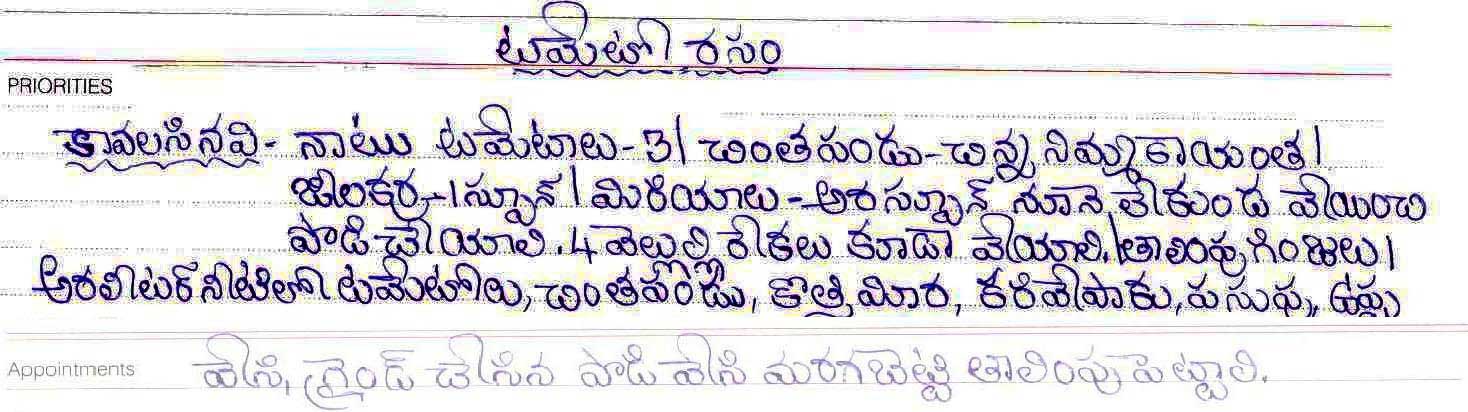 టమేటో రసం
PRIORITIES
కావలసినవి - నాటు టమేటాలు - 3/ చింతపండు - చిన్న నిమ్మకాయంత/
జీలకర్ర - 1 స్పూన్ / మిరియాలు - అరస్పూన్ నూనె లేకుండ వేయించి
పొడి చేయాలి. 4 వెల్లుల్లి రేకలు కూడా వేయాలి. /తాలింపు గింజలు/
అరలీటర్ నీటిలో టమేటోలు, చింతపండు, కొత్తిమీర, కరివేపాకు, పసుపు, ఉప్పు
Appointments వేసి, గ్రైండ్ చేసిన పొడి వేసి మరగబెట్టి తాలింపు పెట్టాలి.